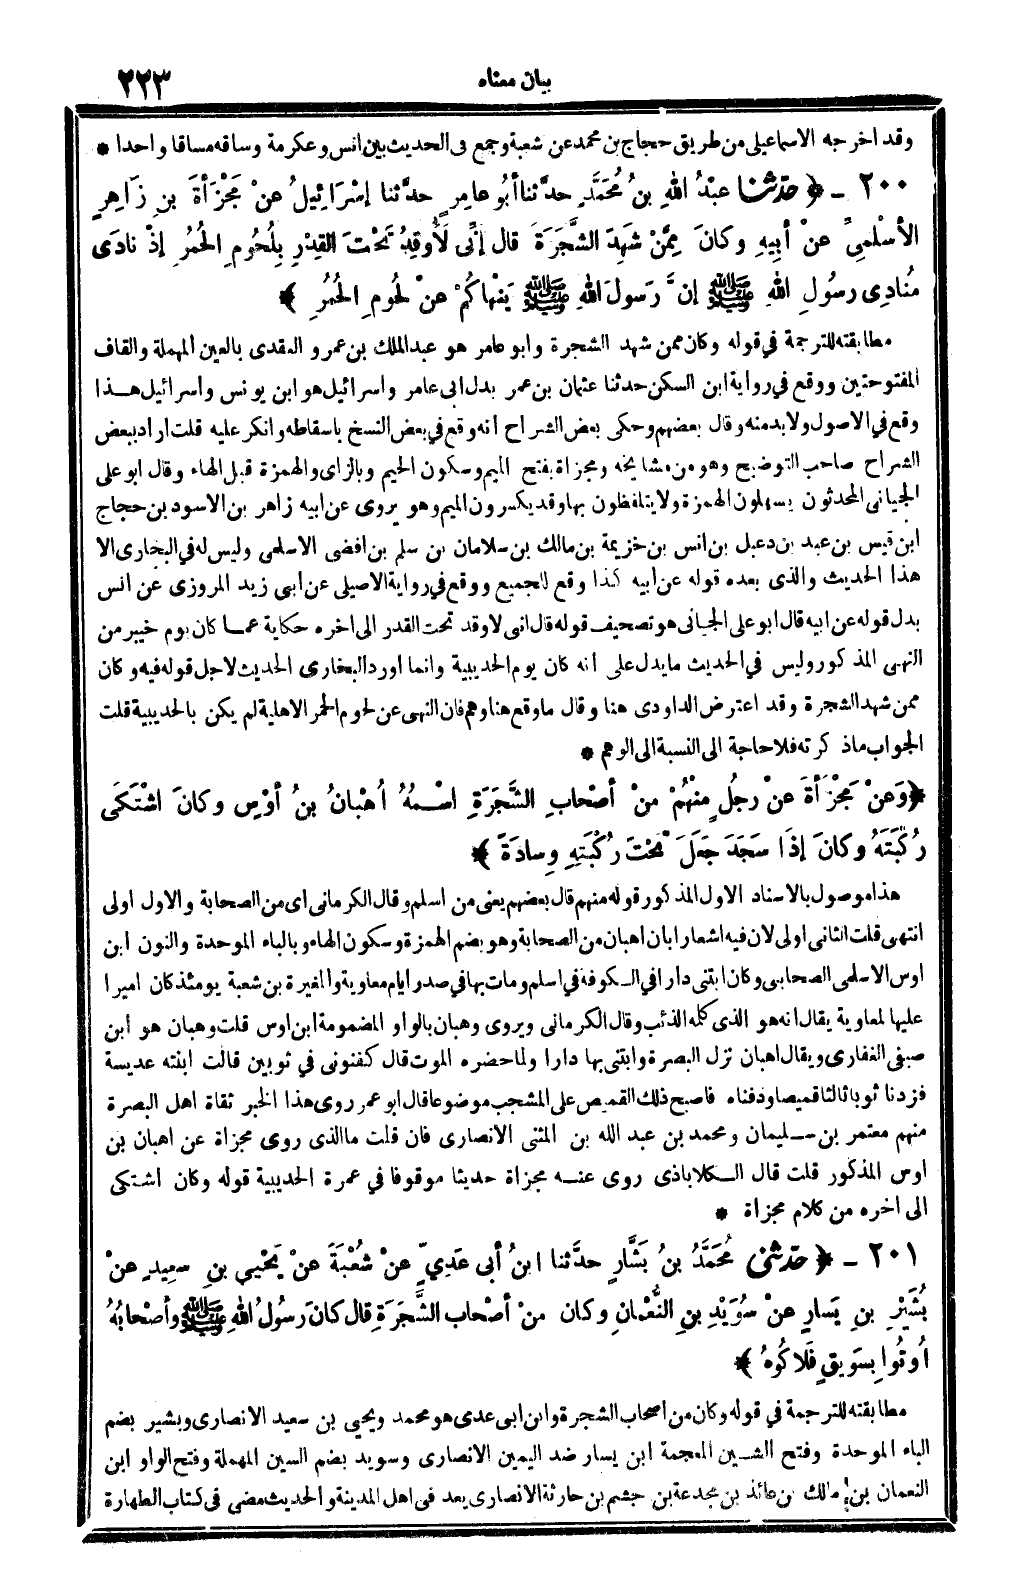 بيان معناه ٢٢٣
وقد اخرجه الاسماعيلى من طريق حجاج بن محمد عن شعبة وجمع فى الحديث بين انس وعكرمة وساقه مساقا واحدا *
٢٠٠ - ﴿ حدّثنا عبْدُ اللهِ بنُ مُحَمَّدٍ حدَّثنا أبُو عامِرٍ حدَّثنا إسْرَائِيلُ عنْ مَجْزَأَةَ بنِ زَاهِرٍ
الأسْلَمِيِّ عنْ أبِيهِ وكانَ مِمَّنْ شَهِدَ الشَّجَرَةَ قال إنِّى لَأُوقِدُ تَحْتَ القِدْرِ بِلُحُومِ الحُمُرِ إذْ نادَى
مُنادِى رسُولِ اللهِ ﷺ إنَّ رَسُولَ اللهِ ﷺ يَنْهاكُمْ عنْ لحُومِ الحُمُرِ ﴾
مطابقته للترجمة في قوله وكان ممن شهد الشجرة وابو عامر هو عبد الملك بن عمرو العقدى بالعين المهملة والقاف
المفتوحتين ووقع في رواية ابن السكن حدثنا عثمان بن عمر بدل ابى عامر واسرائيل هو ابن يونس واسرائيل هذا
وقع في الاصول ولا بد منه وقال بعضهم وحكى بعض الشراح انه وقع في بعض النسخ باسقاطه وانكر عليه قلت اراد ببعض
الشراح صاحب التوضيح وهو من مشايخه ومجزاة بفتح الميم وسكون الجيم وبالزاى والهمزة قبل الهاء وقال ابو على
الجيانى المحدثون يسهلون الهمزة ولا يتلفظون بها وقد يكسرون الميم وهو يروى عن ابيه زاهر بن الاسود بن حجاج
ابن قيس بن عبد بن دعبل بن انس بن خزيمة بن مالك بن سلامان بن سلم بن افضى الاسلمى وليس له في البخارى الا
هذا الحديث والذى بعده قوله عن ابيه كذا وقع للجميع ووقع في رواية الاصيلى عن ابى زيد المروزى عن انس
بدل قوله عن ابيه قال ابو على الجيانى هو تصحيف قوله قال انى لاوقد تحت القدر الى اخره حكاية عما كان يوم خيبر من
النهى المذكور وليس في الحديث ما يدل على انه كان يوم الحديبية وانما اورد البخارى الحديث لاجل قوله فيه وكان
ممن شهد الشجرة وقد اعترض الداودى هنا وقال ما وقع هنا وهم فان النهى عن لحوم الحمر الاهلية لم يكن بالحديبية قلت
الجواب ماذكرته فلا حاجة الى النسبة الى الوهم *
﴿ وَعنْ مَجْزَأةَ عنْ رجُلٍ مِنْهُمْ منْ أصْحابِ الشَّجَرَةِ اسْمُهُ أُهْبانُ بنُ أوْسٍ وكانَ اشْتَكَى
رُكْبَتَهُ وكانَ إذَا سَجَدَ جَعَلَ تَحْتَ رُكْبَتِهِ وِسادَةً ﴾
هذا موصول بالاسناد الاول المذكور قوله منهم قال بعضهم يعنى من اسلم وقال الكرمانى اى من الصحابة والاول اولى
انتهى قلت الثانى اولى لان فيه اشعارا بان اهبان من الصحابة وهو بضم الهمزة وسكون الهاء وبالباء الموحدة والنون ابن
اوس الاسلمى الصحابى وكان ابتنى دارا في الكوفة في اسلم ومات بها في صدر ايام معاوية والمغيرة بن شعبة يومئذ كان اميرا
عليها لمعاوية يقال انه هو الذى كلمه الذئب وقال الكرمانى ويروى وهبان بالواو المضمومة ابن اوس قلت وهبان هو ابن
صيفى الغفارى ويقال اهبان نزل البصرة وابتنى بها دارا ولما حضره الموت قال كفنونى في ثوبين قالت ابنته عديسة
فزدنا ثوبا ثالثا قميصا ودفناه فاصبح ذلك القميص على المشجب موضوعا قال ابو عمر روى هذا الخبر ثقاة اهل البصرة
منهم معتمر بن سليمان ومحمد بن عبد الله بن المثنى الانصارى فان قلت ما الذى روى مجزاة عن اهبان بن
اوس المذكور قلت قال الكلاباذى روى عنه مجزاة حديثا موقوفا في عمرة الحديبية قوله وكان اشتكى
الى اخره من كلام مجزاة *
٢٠١ - ﴿ حدّثنى مُحَمَّدُ بنُ بَشَّارٍ حدَّثنا ابنُ أبى عَدِيٍّ عنْ شُعْبَةَ عنْ يَحْيي بنِ سعِيدٍ عنْ
بُشَيْرِ بنِ يَسارٍ عنْ سُوَيْدِ بنِ النُّعْمانِ وكان منْ أصْحابِ الشَّجَرَةِ قال كانَ رَسُولُ اللهِ ﷺ وأصْحابُهُ
أُوتُوا بِسَوِيقٍ فَلَاكُوهُ ﴾
مطابقته للترجمة في قوله وكان من اصحاب الشجرة وابن ابى عدى هو محمد ويحيى بن سعيد الانصارى وبشير بضم
الباء الموحدة وفتح الشين المعجمة ابن يسار ضد اليمين الانصارى وسويد بضم السين المهملة وفتح الواو ابن
النعمان بن مالك بن عائذ بن مجدعة بن جشم بن حارثة الانصارى يعد فى اهل المدينة والحديث مضى فى كتاب الطهارة